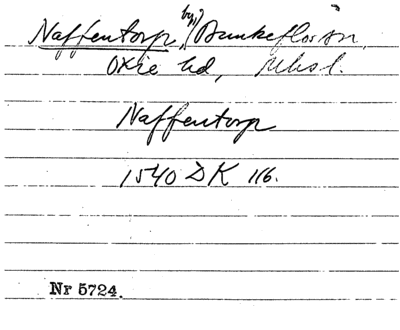 Naffentorp, by, Bunkeflo sn,
Oxie hd, Mhsl.
Naffentorp
1540 DK 116.
Nr 5724.